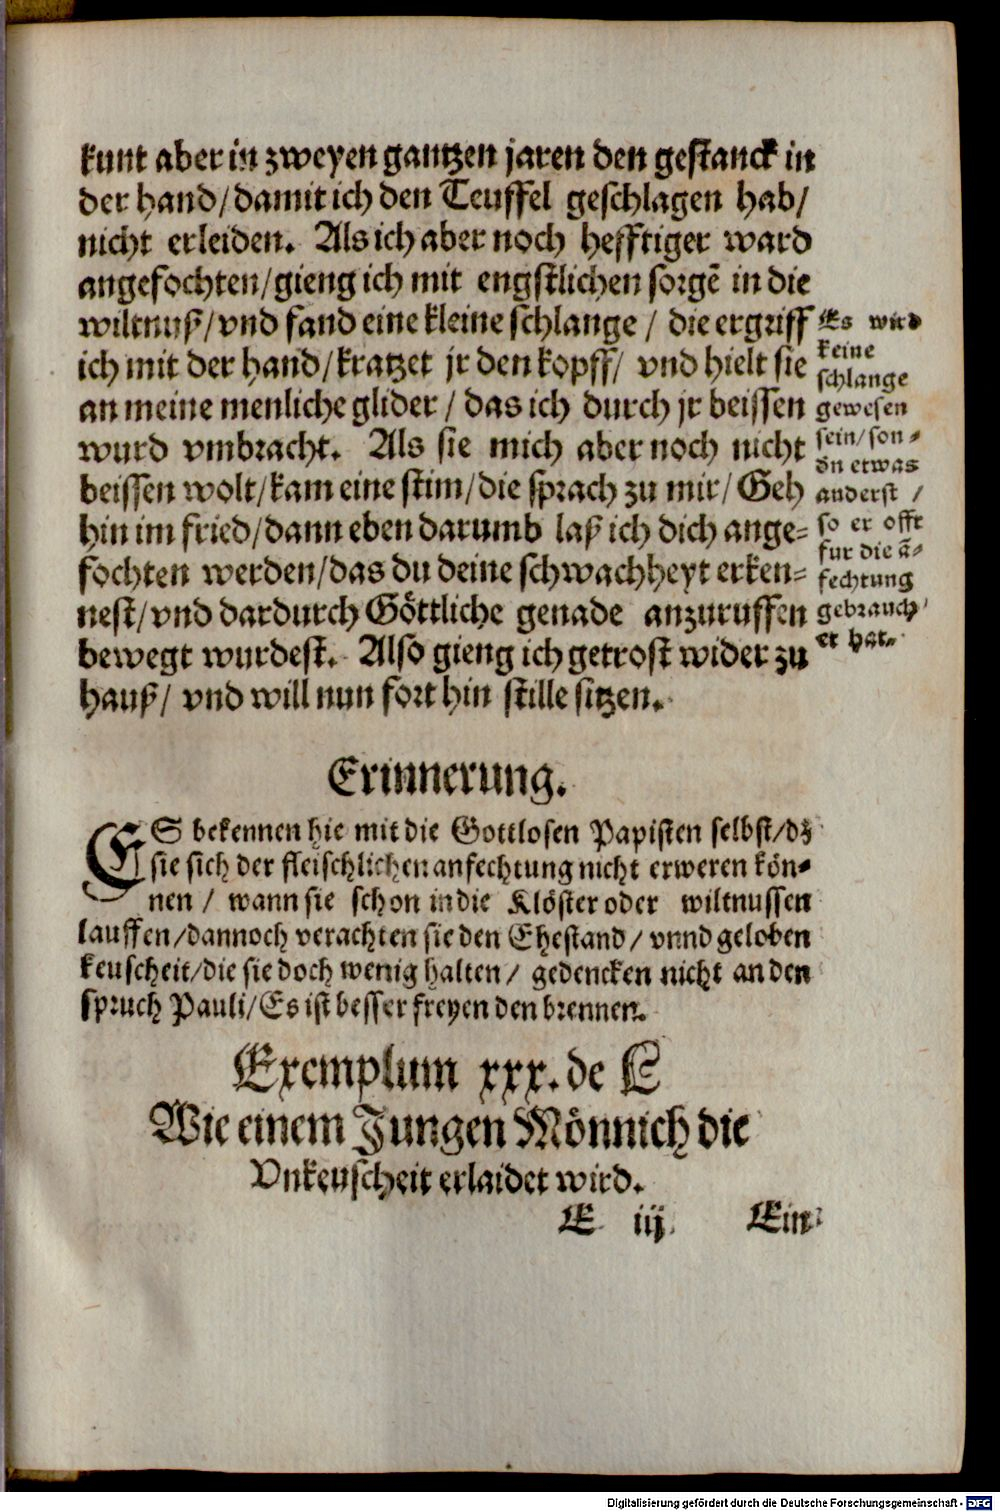 kunt aber in zweyen gantzen jaren den gestanck in
der hand/damit ich den Teuffel geschlagen hab/
nicht erleiden. Als ich aber noch hefftiger ward
angefochten/gieng ich mit engstlichen sorgē in die
wiltnuß/vnd fand eine kleine schlange / die ergriff
ich mit der hand/kratzet jr den kopff/ vnd hielt sie
an meine menliche glider / das ich durch jr beissen
wurd vmbracht. Als sie mich aber noch nicht
beissen wolt/kam eine stim/die sprach zu mir/Geh
hin im fried/dann eben darumb laß ich dich ange-
fochten werden/das du deine schwachheyt erken-
nest/vnd dardurch Göttliche genade anzuruffen
bewegt wurdest. Also gieng ich getrost wider zu
hauß/ vnd will nun fort hin stille sitzen.
Es wird
keine
schlange
gewesen
sein/son-
dn etwas
anderst /
so er offt
fur die ā-
fechtung
gebrauch
et hat.
Erinnerung.
ES bekennen hie mit die Gottlosen Papisten selbst/dz
sie sich der fleischlichen anfechtung nicht erweren kön-
nen / wann sie schon in die Klöster oder wiltnussen
lauffen/dannoch verachten sie den Ehestand/ vnnd geloben
keuscheit/die sie doch wenig halten/ gedencken nicht an den
spruch Pauli/Es ist besser freyen den brennen.
Exemplum xxx. de L
Wie einem Jungen Mönnich die
Vnkeuscheit erlaidet wird.
E iij Ein
Digitalisierung gefördert durch die Deutsche Forschungsgemeinschaft - DFG